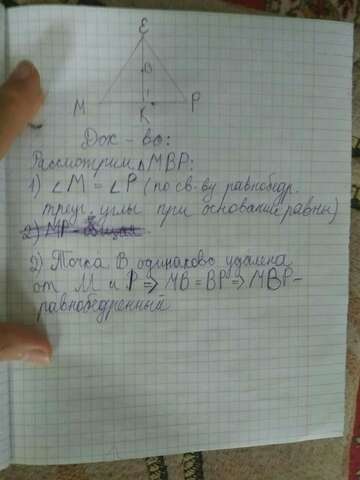 E
B
M
K
P
Док-во:
Рассмотрим △MBP:
1) ∠M = ∠P (по св-ву равнобедр.
треуг. углы при основании равны)
2) MP - общая
2) Точка B одинаково удалена
от M и P ⇒ MB = BP ⇒ MBP -
равнобедренный